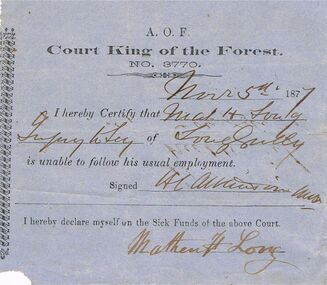 A. O. F.
Court King of the Forest.
NO. 3770.
Novr 5th 1877
I hereby Certify that Mat H. Long
Injury to Leg of Long Gully
is unable to follow his usual employment.
Signed H C Atkinson
I hereby declare myself on the Sick Funds of the above Court.
Mathew H Long